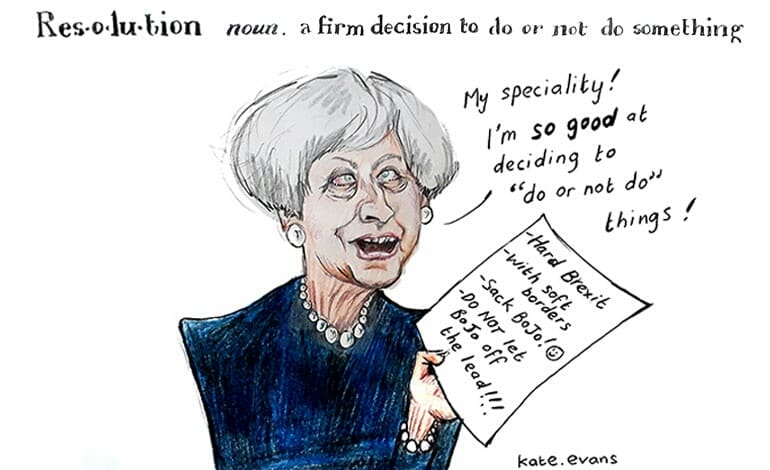 Res·o·lu·tion noun. a firm decision to do or not do something
My speciality!
I'm so good at
deciding to
"do or not do"
things!
-Hard Brexit
-with soft
borders
-Sack BoJo! ☺
-DO NOT let
BoJo off
the lead!!!
kate.evans